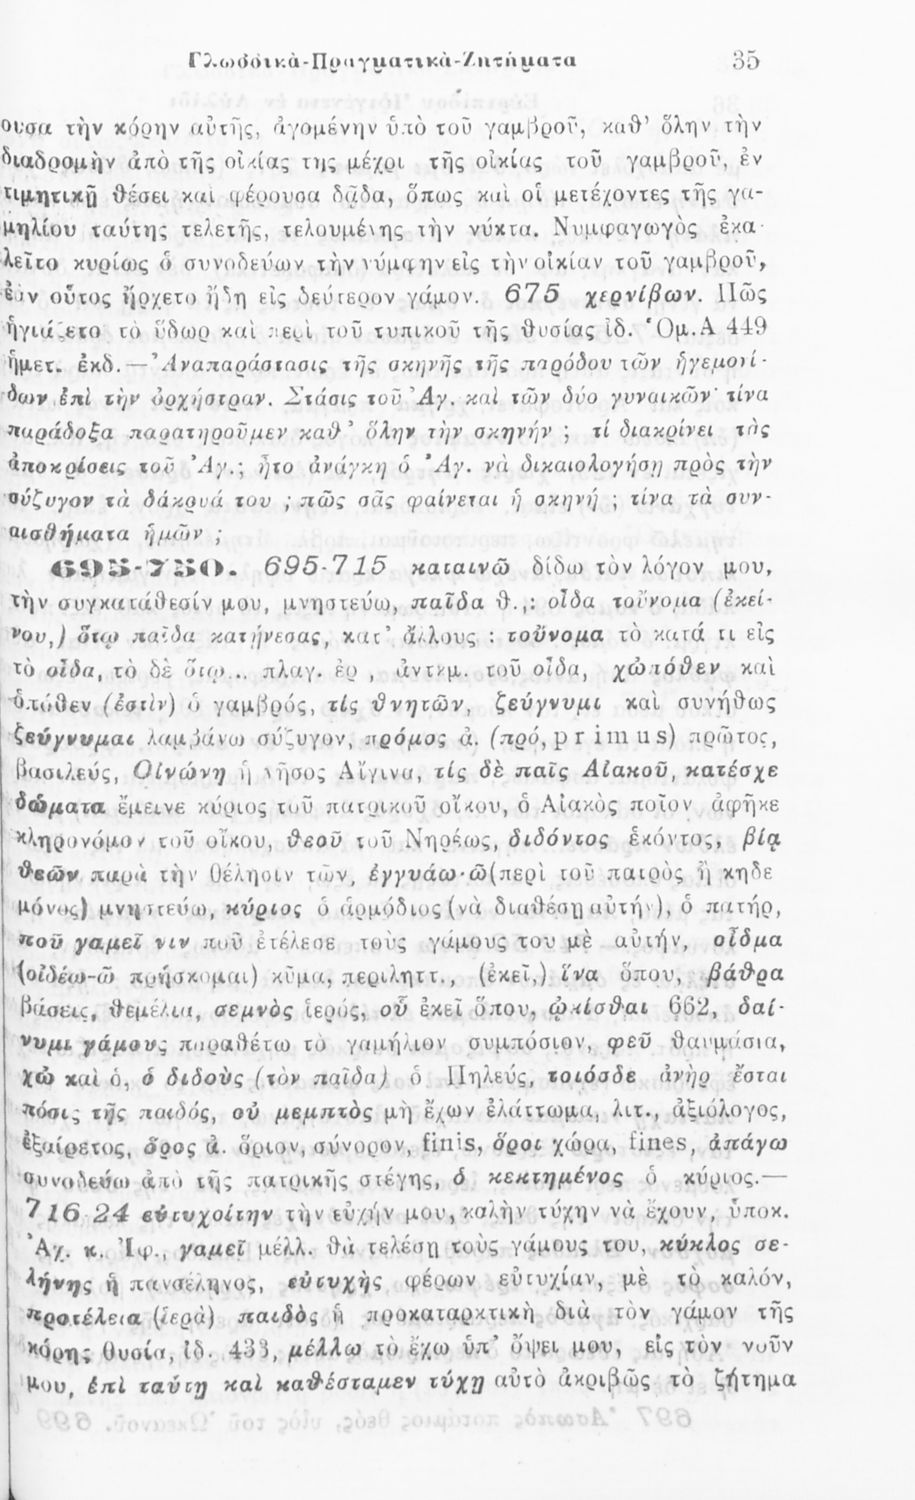 Γλωσσικὰ-Πραγματικὰ-Ζητήματα 35
ουσα τὴν κόρην αὐτῆς, ἀγομένην ὑπὸ τοῦ γαμβροῦ, καθ' ὅλην τὴν
διαδρομὴν ἀπὸ τῆς οἰκίας της μέχρι τῆς οἰκίας τοῦ γαμβροῦ, ἐν
τιμητικῇ θέσει καὶ φέρουσα δᾷδα, ὅπως καὶ οἱ μετέχοντες τῆς γα-
μηλίου ταύτης τελετῆς, τελουμένης τὴν νύκτα. Νυμφαγωγὸς ἐκα-
λεῖτο κυρίως ὁ συνοδεύων τὴν νύμφην εἰς τὴν οἰκίαν τοῦ γαμβροῦ,
ἐὰν οὗτος ἤρχετο ἤδη εἰς δεύτερον γάμον. 675 χερνίβων. Πῶς
ἡγιάζετο τὸ ὕδωρ καὶ περὶ τοῦ τυπικοῦ τῆς θυσίας ἰδ. Ὁμ. Α 449
ἡμετ. ἐκδ.—Ἀναπαράστασις τῆς σκηνῆς τῆς παρόδου τῶν ἡγεμονί-
δων ἐπὶ τὴν ὀρχήστραν. Στάσις τοῦ Ἀγ. καὶ τῶν δύο γυναικῶν τίνα
παράδοξα παρατηροῦμεν καθ' ὅλην τὴν σκηνήν ; τί διακρίνει τὰς
ἀποκρίσεις τοῦ Ἀγ.; ἦτο ἀνάγκη ὁ Ἀγ. νὰ δικαιολογήσῃ πρὸς τὴν
σύζυγον τὰ δάκρυά του ; πῶς σᾶς φαίνεται ἡ σκηνή ; τίνα τὰ συν-
αισθήματα ἡμῶν ;
695-750. 695-715 καταινῶ δίδω τὸν λόγον μου,
τὴν συγκατάθεσίν μου, μνηστεύω, παῖδα θ.,: οἶδα τοὔνομα (ἐκεί-
νου,) ὅτῳ παῖδα κατῄνεσας, κατ' ἄλλους : τοὔνομα τὸ κατά τι εἰς
τὸ οἶδα, τὸ δὲ ὅτῳ... πλαγ. ἐρ , ἀντκμ. τοῦ οἶδα, χὠπόθεν καὶ
ὁπόθεν (ἐστὶν) ὁ γαμβρός, τίς θνητῶν, ζεύγνυμι καὶ συνήθως
ζεύγνυμαι λαμβάνω σύζυγον, πρόμος ἀ. (πρό, primus) πρῶτος,
βασιλεύς, Οἰνώνη ἡ νῆσος Αἴγινα, τίς δὲ παῖς Αἰακοῦ, κατέσχε
δώματα ἔμεινε κύριος τοῦ πατρικοῦ οἴκου, ὁ Αἰακὸς ποῖον ἀφῆκε
κληρονόμον τοῦ οἴκου, θεοῦ τοῦ Νηρέως, διδόντος ἑκόντος, βίᾳ
θεῶν παρὰ τὴν θέλησιν των, ἐγγυάω-ῶ(περὶ τοῦ πατρὸς ἢ κηδε
μόνος) μνηστεύω, κύριος ὁ ἁρμόδιος (νὰ διαθέσῃ αὐτήν), ὁ πατήρ,
ποῦ γαμεῖ νιν ποῦ ἐτέλεσε τοὺς γάμους του μὲ αὐτήν, οἶδμα
(οἰδέω-ῶ πρήσκομαι) κῦμα, περιληπτ., (ἐκεῖ,) ἵνα ὅπου, βάθρα
βάσεις, θεμέλια, σεμνὸς ἱερός, οὗ ἐκεῖ ὅπου, ᾠκίσθαι 662, δαί-
νυμι γάμους παραθέτω τὸ γαμήλιον συμπόσιον, φεῦ θαυμάσια,
χὠ καὶ ὁ, ὁ διδοὺς (τὸν παῖδα) ὁ Πηλεύς, τοιόσδε ἀνὴρ ἔσται
πόσις τῆς παιδός, οὐ μεμπτὸς μὴ ἔχων ἐλάττωμα, λιτ., ἀξιόλογος,
ἐξαίρετος, ὅρος ἀ. ὅριον, σύνορον, finis, ὅροι χώρα, fines, ἀπάγω
συνοδεύω ἀπὸ τῆς πατρικῆς στέγης, ὁ κεκτημένος ὁ κύριος.—
716-24 εὐτυχοίτην τὴν εὐχήν μου, καλὴν τύχην νὰ ἔχουν, ὑποκ.
Ἀχ. κ. Ἰφ., γαμεῖ μέλλ. θὰ τελέσῃ τοὺς γάμους του, κύκλος σε-
λήνης ἡ πανσέληνος, εὐτυχὴς φέρων εὐτυχίαν, μὲ τὸ καλόν,
προτέλεια (ἱερὰ) παιδὸς ἡ προκαταρκτικὴ διὰ τὸν γάμον τῆς
κόρης θυσία, ἰδ. 433, μέλλω τὸ ἔχω ὑπ' ὄψει μου, εἰς τὸν νοῦν
μου, ἐπὶ ταύτῃ καὶ καθέσταμεν τύχῃ αὐτὸ ἀκριβῶς τὸ ζήτημα